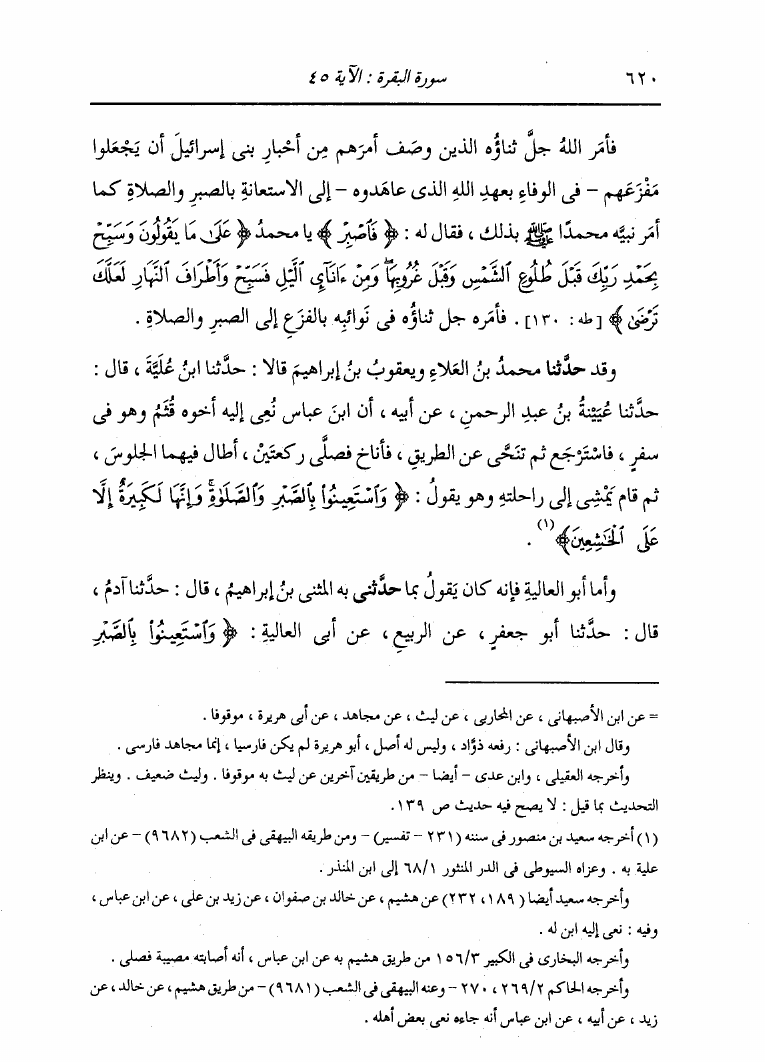 ٦٢٠ سورة البقرة : الآية ٤٥
فأمَر اللهُ جلَّ ثناؤُه الذين وصَف أمرَهم مِن أحْبارِ بنى إسرائيلَ أن يَجْعَلوا
مَفْزَعَهم – فى الوفاءِ بعهدِ اللهِ الذى عاهَدوه – إلى الاستعانةِ بالصبرِ والصلاةِ كما
أمَر نبيَّه محمدًا ﷺ بذلك ، فقال له : ﴿ فَٱصْبِرْ ﴾ يا محمدُ ﴿ عَلَىٰ مَا يَقُولُونَ وَسَبِّحْ
بِحَمْدِ رَبِّكَ قَبْلَ طُلُوعِ ٱلشَّمْسِ وَقَبْلَ غُرُوبِهَاۖ وَمِنْ ءَانَآيِٕ ٱلَّيْلِ فَسَبِّحْ وَأَطْرَافَ ٱلنَّهَارِ لَعَلَّكَ
تَرْضَىٰ ﴾ [طه : ١٣٠] . فأمَره جل ثناؤُه فى نَوائبِه بالفزَعِ إلى الصبرِ والصلاةِ .
وقد حدَّثنا محمدُ بنُ العَلاءِ ويعقوبُ بنُ إبراهيمَ قالا : حدَّثنا ابنُ عُلَيَّةَ ، قال :
حدَّثنا عُيَيْنةُ بنُ عبدِ الرحمنِ ، عن أبيه ، أن ابنَ عباسٍ نُعِى إليه أخوه قُثَمُ وهو فى
سفرٍ ، فاسْتَرْجَع ثم تنَحَّى عن الطريقِ ، فأناخ فصلَّى ركعتَيْن ، أطال فيهما الجلوسَ ،
ثم قام يَمْشِى إلى راحلتِه وهو يقولُ : ﴿ وَٱسْتَعِينُوا۟ بِٱلصَّبْرِ وَٱلصَّلَوٰةِۚ وَإِنَّهَا لَكَبِيرَةٌ إِلَّا
عَلَى ٱلْخَٰشِعِينَ﴾(١) .
وأما أبو العاليةِ فإنه كان يَقولُ بما حدَّثنى به المثنى بنُ إبراهيمَ ، قال : حدَّثنا آدمُ ،
قال : حدَّثنا أبو جعفرٍ ، عن الربيعِ ، عن أبى العاليةِ : ﴿ وَٱسْتَعِينُوا۟ بِٱلصَّبْرِ
= عن ابن الأصبهانى ، عن المحاربى ، عن ليث ، عن مجاهد ، عن أبى هريرة ، موقوفا .
وقال ابن الأصبهانى : رفعه ذؤاد ، وليس له أصل ، أبو هريرة لم يكن فارسيا ، إنما مجاهد فارسى .
وأخرجه العقيلى ، وابن عدى – أيضا – من طريقين آخرين عن ليث به موقوفا . وليث ضعيف . وينظر
التحديث بما قيل : لا يصح فيه حديث ص ١٣٩ .
(١) أخرجه سعيد بن منصور فى سننه (٢٣١ – تفسير) – ومن طريقه البيهقى فى الشعب (٩٦٨٢) – عن ابن
علية به . وعزاه السيوطى فى الدر المنثور ٦٨/١ إلى ابن المنذر .
وأخرجه سعيد أيضا (١٨٩ ، ٢٣٢) عن هشيم ، عن خالد بن صفوان ، عن زيد بن على ، عن ابن عباس ،
وفيه : نعى إليه ابن له .
وأخرجه البخارى فى الكبير ١٥٦/٣ من طريق هشيم به عن ابن عباس ، أنه أصابته مصيبة فصلى .
وأخرجه الحاكم ٢٦٩/٢ ، ٢٧٠ – وعنه البيهقى فى الشعب (٩٦٨١) – من طريق هشيم ، عن خالد ، عن
زيد ، عن أبيه ، عن ابن عباس أنه جاءه نعى بعض أهله .